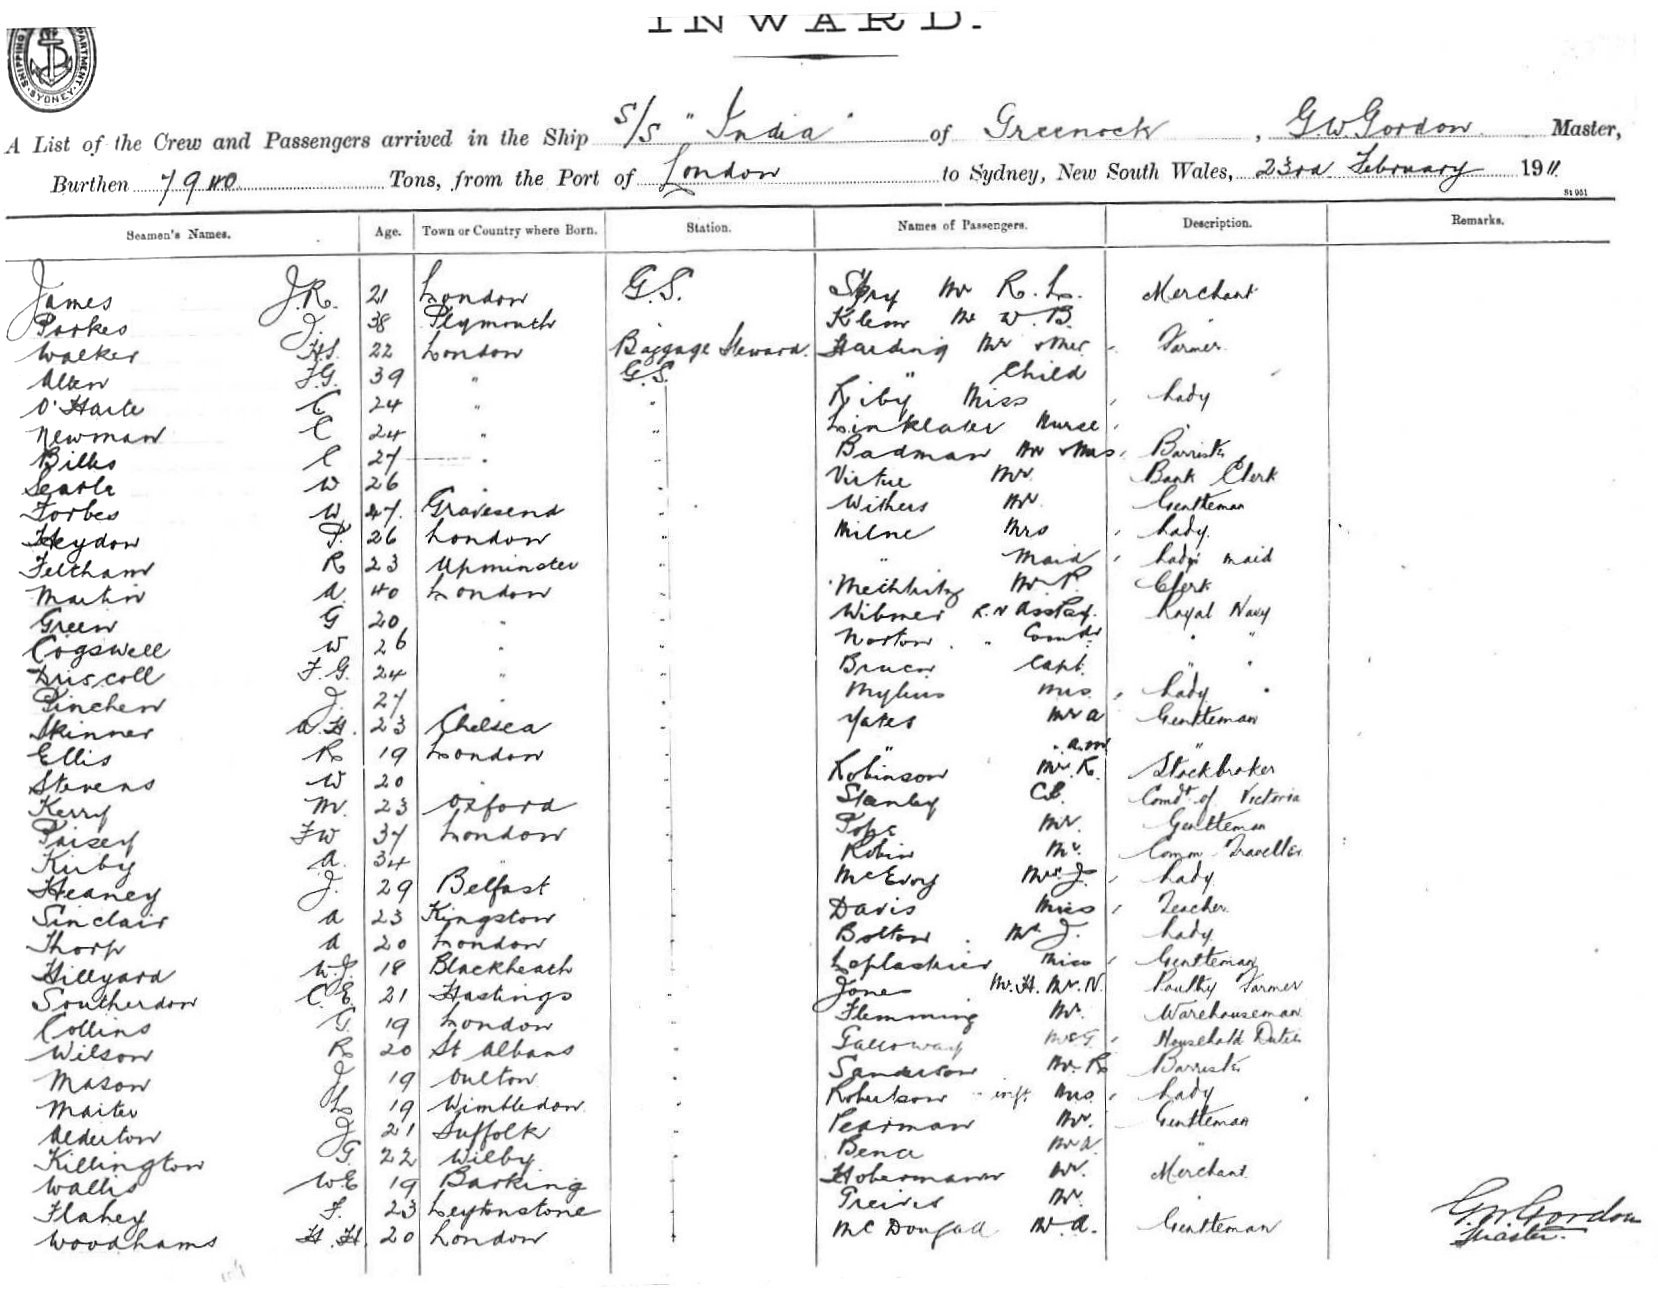 INWARD.
SHIPPING DEPARTMENT SYDNEY
A List of the Crew and Passengers arrived in the Ship S/S "India" of Greenock, G.W. Gordon Master,
Burthen 7940 Tons, from the Port of London to Sydney, New South Wales, 23rd February 1911
St 951
Seamen's Names. Age. Town or Country where Born. Station. Names of Passengers. Description. Remarks.
James J.R. 21 London G.S. Spry Mr R. L. Merchant
Parkes J. 38 Plymouth Klein Mr W. B. "
Walker H.S. 22 London Baggage Steward. Harding Mr & Mrs Farmer
Allen F.G. 39 " G.S. " Child
O'Harte C 24 " " Kiby Miss Lady
Newman C 24 " " Linklater Nurse
Bilks C 27 " " Badman Mr & Mrs Barrister
Searle W 26 " Virtue Mr Bank Clerk
Forbes W. 47 Gravesend " Withers Mr Gentleman
Heydon P. 26 London " Milne Mrs Lady
Feltham R 23 Upminster " " Maid Lady's maid
Martin A. 40 London " Mr P. Clerk
Green G 20 " " Wibmer R.N. Asst Pay. Royal Navy
Cogswell W 26 " " Norton " Comdr " "
Driscoll F.G. 24 " " Bruce Capt. " "
Pinchen J. 27 " " Mylius Mrs Lady
Skinner A.H. 23 Chelsea " Yates Mr A Gentleman
Ellis R 19 London " " A.M "
Stevens W 20 " " Robinson Mr. R. Stockbroker
Kerry M. 23 Oxford " Stanley CB. Comdt of Victoria
Paisey FW 37 London " Pope Mr. Gentleman
Kirby A. 34 " " Robin Mr. Comm. Traveller
Heaney J. 29 Belfast " McEvoy Mrs J. Lady
Sinclair A 23 Kingston " Davis Miss Teacher
Thorp A 20 London " Bolton J. Lady
Hillyard W.J. 18 Blackheath " Miss Gentleman
Southerdon C.E. 21 Hastings " Jones Mr. H. Mr. N. Poultry Farmer
Collins G. 19 London " Flemming Mr. Warehouseman
Wilson R 20 St Albans " Galloway Household Duties
Mason J 19 Oulton " Sanderson Mr. R Barrister
Maiter L 19 Wimbledon " Robertson inft Mrs Lady
Alderton J 21 Suffolk " Pearman Mr. Gentleman
Killington G. 22 Wilby " Bena Mr A "
Wallis W E 19 Barking " Hobermann Mr. Merchant
Flahey F. 23 Leytonstone " Mr. "
Woodhams H.H. 20 London " McDougall Mr. A. Gentleman
G.W. Gordon
Master.